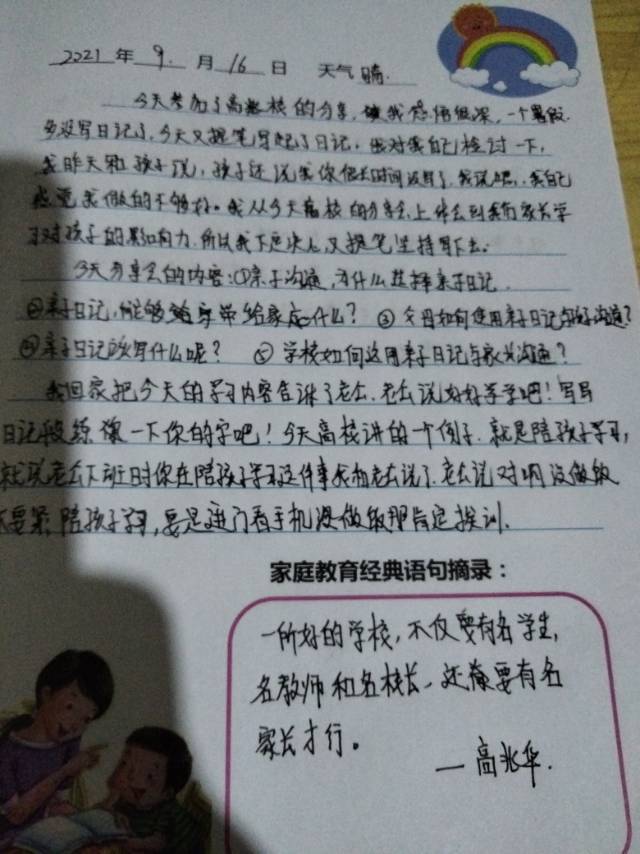 2021年9月16日 天气晴.
今天参加了高校的分享,我感悟很深,一个暑假
多没写日记了,今天又提笔写起了日记,面对我自己检讨一下,
我昨天和孩子说,孩子还说我你很长时间没写了,我说嗯,我自己
感觉我做的不够好。我从今天高校的分享会上体会到我们家长学
习对孩子的影响力,所以我下定决心又提笔坚持写下去。
今天分享会的内容:①亲子沟通,为什么选择亲子日记.
②亲子日记,能够给家庭什么? ③父母如何使用亲子日记与孩子沟通?
④亲子日记该写什么呢? ⑤学校如何运用亲子日记与家长沟通?
我回家把今天的学习内容告诉了老公.老公说好好学学吧!写写
日记,练一下你的字吧!今天高校讲的一个例子.就是陪孩子学习,
就说老公下班时你在陪孩子学习这件事我和老公说了.老公说对啊没做饭
不要紧,陪孩子学习,要是进门看手机没做饭那肯定挨训.
家庭教育经典语句摘录:
一所好的学校,不仅要有名学生,
名教师和名校长,还需要有名
家长才行。
——高兆华.